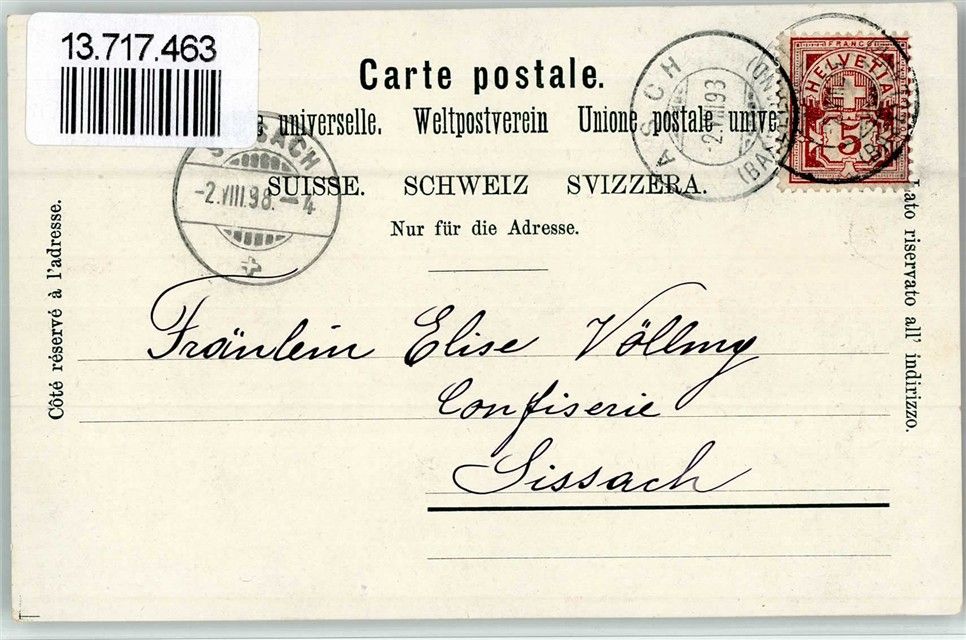 13.717.463
Carte postale.
universelle. Weltpostverein Unione postale unive
SUISSE. SCHWEIZ SVIZZERA.
Nur für die Adresse.
Côté réservé à l'adresse.
Lato riservato all' indirizzo.
SISSACH
-2.VIII.98.-4
FRANCO
HELVETIA
5
Fräulein Elise Völlmy
Confiserie
Sissach